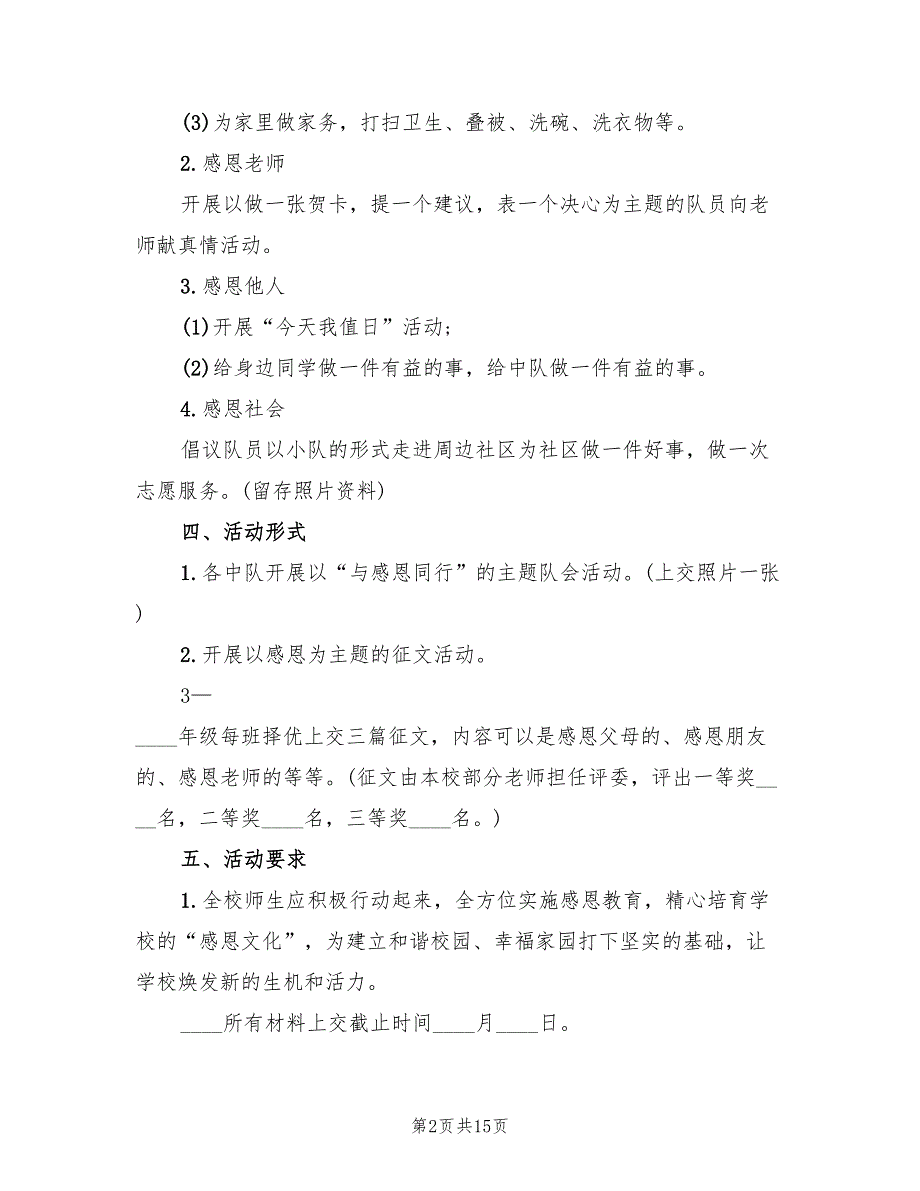 (3)为家里做家务，打扫卫生、叠被、洗碗、洗衣物等。
2.感恩老师
开展以做一张贺卡，提一个建议，表一个决心为主题的队员向老
师献真情活动。
3.感恩他人
(1)开展“今天我值日”活动;
(2)给身边同学做一件有益的事，给中队做一件有益的事。
4.感恩社会
倡议队员以小队的形式走进周边社区为社区做一件好事，做一次
志愿服务。(留存照片资料)
四、活动形式
1.各中队开展以“与感恩同行”的主题队会活动。(上交照片一张
)
2.开展以感恩为主题的征文活动。
3—
____年级每班择优上交三篇征文，内容可以是感恩父母的、感恩朋友
的、感恩老师的等等。(征文由本校部分老师担任评委，评出一等奖__
__名，二等奖____名，三等奖____名。)
五、活动要求
1.全校师生应积极行动起来，全方位实施感恩教育，精心培育学
校的“感恩文化”，为建立和谐校园、幸福家园打下坚实的基础，让
学校焕发新的生机和活力。
____所有材料上交截止时间____月____日。
第2页共15页